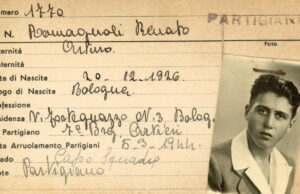 umero 1770
PARTIGIAN
N. Romagnoli Renato
Foto
ternità Arturo
ternità
ta di Nascita 20-12-1926
ogo di Nascita Bologna
rofessione
sidenza V. N. 3. Bolog.
Partigiano 7ª Brg.
ta Arruolamento Partigiani 5.3-1944
ado Capo Squadra
Partigiano